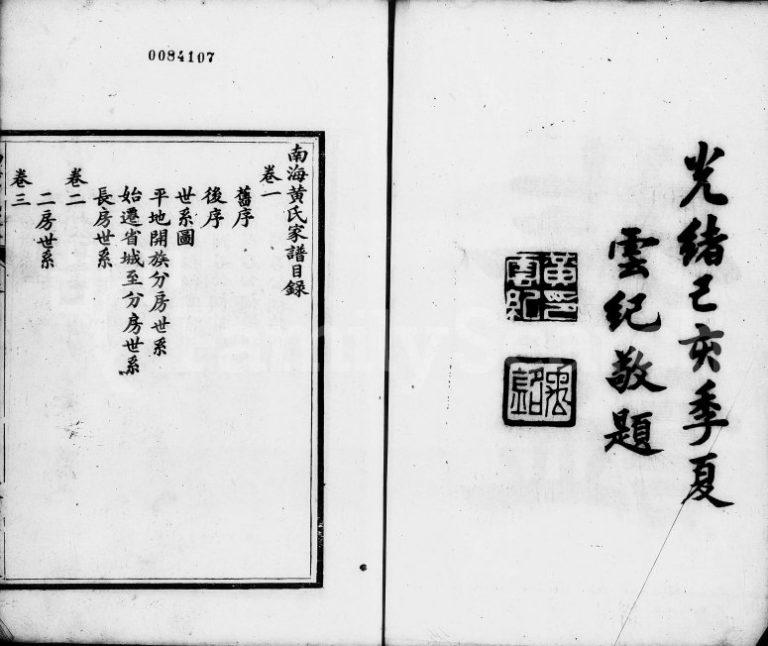 光緒己亥季夏
雲紀敬題
黃印雲紀
0084107
南海黃氏家譜目錄
卷一
舊序
後序
世系圖
平地開族分房世系
始遷省城至分房世系
長房世系
卷二
二房世系
卷三